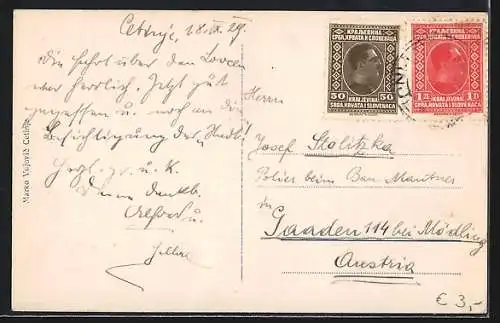 Cetinje, 18.IX.29.
Die Fahrt über den Lovcen
war herrlich. Jetzt gut
gegessen u. noch an die
Besichtigung der Stadt!
Herzl. Gr. u. K.
Eure dankb.
u.
Marko Vujović Cetinje
КРАЉЕВИНА
СРБА, ХРВАТА И СЛОВЕНАЦА
50 50
KRALJEVINA
SRBA, HRVATA I SLOVENACA
КРАЉЕВИНА
СРБА, ХРВАТА И СЛОВЕНАЦА
1 Д 1 D
KRALJEVINA
SRBA, HRVATA I SLOVENACA
Herrn
Josef Stolitzka
Polier beim Bau Mautner
in
Gaaden 114 bei Mödling
Austria
€ 3,-